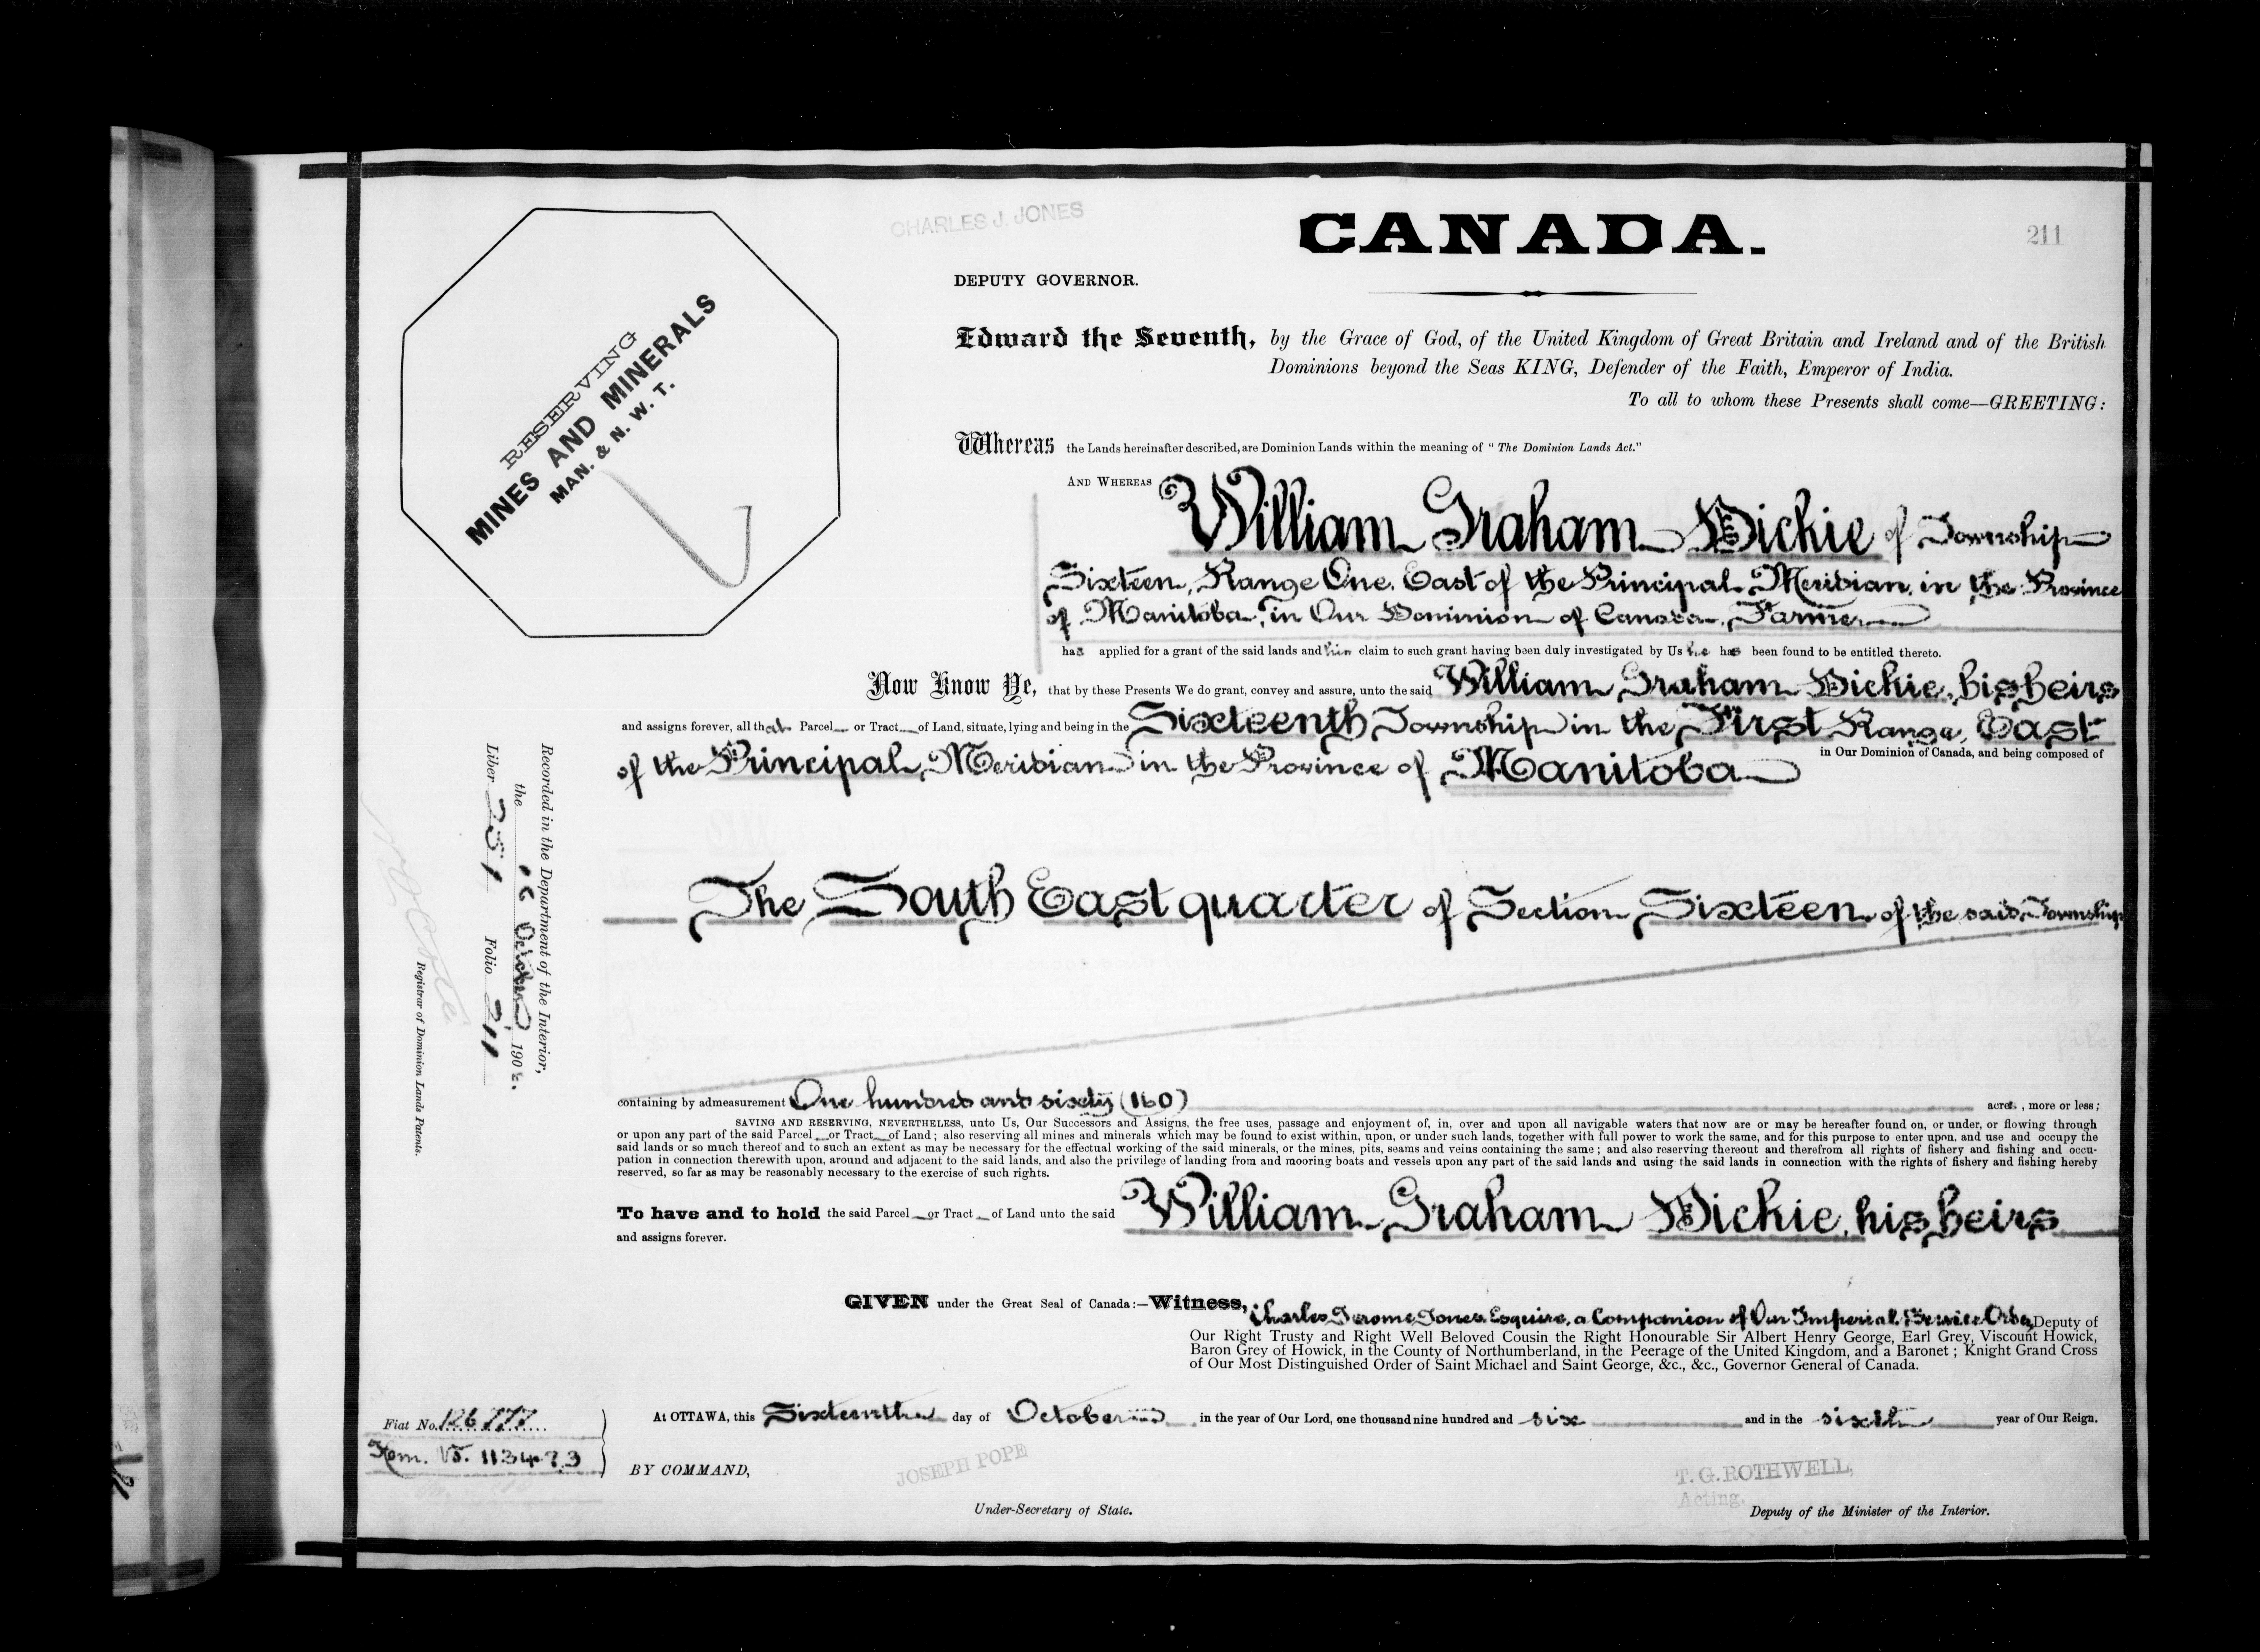 CHARLES J. JONES
CANADA.
211
DEPUTY GOVERNOR.
RESERVING
MINES AND MINERALS
MAN. & N. W. T.
Edward the Seventh, by the Grace of God, of the United Kingdom of Great Britain and Ireland and of the British
Dominions beyond the Seas KING, Defender of the Faith, Emperor of India.
To all to whom these Presents shall come—GREETING:
Whereas the Lands hereinafter described, are Dominion Lands within the meaning of " The Dominion Lands Act."
AND WHEREAS William Graham Dickie of Township
Sixteen, Range One, East of the Principal Meridian, in the Province
of Manitoba, in Our Dominion of Canada, Farmer
has applied for a grant of the said lands and his claim to such grant having been duly investigated by Us he has been found to be entitled thereto.
Now Know Ye, that by these Presents We do grant, convey and assure, unto the said William Graham Dickie, his heirs
and assigns forever, all that Parcel or Tract of Land, situate, lying and being in the Sixteenth Township in the First Range, East
of the Principal Meridian in the Province of Manitoba in Our Dominion of Canada, and being composed of
The South East quarter of Section Sixteen of the said Township
containing by admeasurement One hundred and sixty (160) acres, more or less;
SAVING AND RESERVING, NEVERTHELESS, unto Us, Our Successors and Assigns, the free uses, passage and enjoyment of, in, over and upon all navigable waters that now are or may be hereafter found on, or under, or flowing through
or upon any part of the said Parcel or Tract of Land; also reserving all mines and minerals which may be found to exist within, upon, or under such lands, together with full power to work the same, and for this purpose to enter upon, and use and occupy the
said lands or so much thereof and to such an extent as may be necessary for the effectual working of the said minerals, or the mines, pits, seams and veins containing the same; and also reserving thereout and therefrom all rights of fishery and fishing and occu-
pation in connection therewith upon, around and adjacent to the said lands, and also the privilege of landing from and mooring boats and vessels upon any part of the said lands and using the said lands in connection with the rights of fishery and fishing hereby
reserved, so far as may be reasonably necessary to the exercise of such rights.
To have and to hold the said Parcel or Tract of Land unto the said William Graham Dickie, his heirs
and assigns forever.
GIVEN under the Great Seal of Canada:—Witness, Charles Jerome Jones, Esquire, a Companion of Our Imperial Service Order, Deputy of
Our Right Trusty and Right Well Beloved Cousin the Right Honourable Sir Albert Henry George, Earl Grey, Viscount Howick,
Baron Grey of Howick, in the County of Northumberland, in the Peerage of the United Kingdom, and a Baronet; Knight Grand Cross
of Our Most Distinguished Order of Saint Michael and Saint George, &c., &c., Governor General of Canada.
At OTTAWA, this Sixteenth day of October in the year of Our Lord, one thousand nine hundred and six and in the sixth year of Our Reign.
BY COMMAND,
JOSEPH POPE
Under-Secretary of State.
T. G. ROTHWELL,
Acting.
Deputy of the Minister of the Interior.
Recorded in the Department of the Interior,
the 16 October 1906.
Liber 251 Folio 211
N O Coté
Registrar of Dominion Lands Patents.
Fiat No. 126777
Hom. 1134773